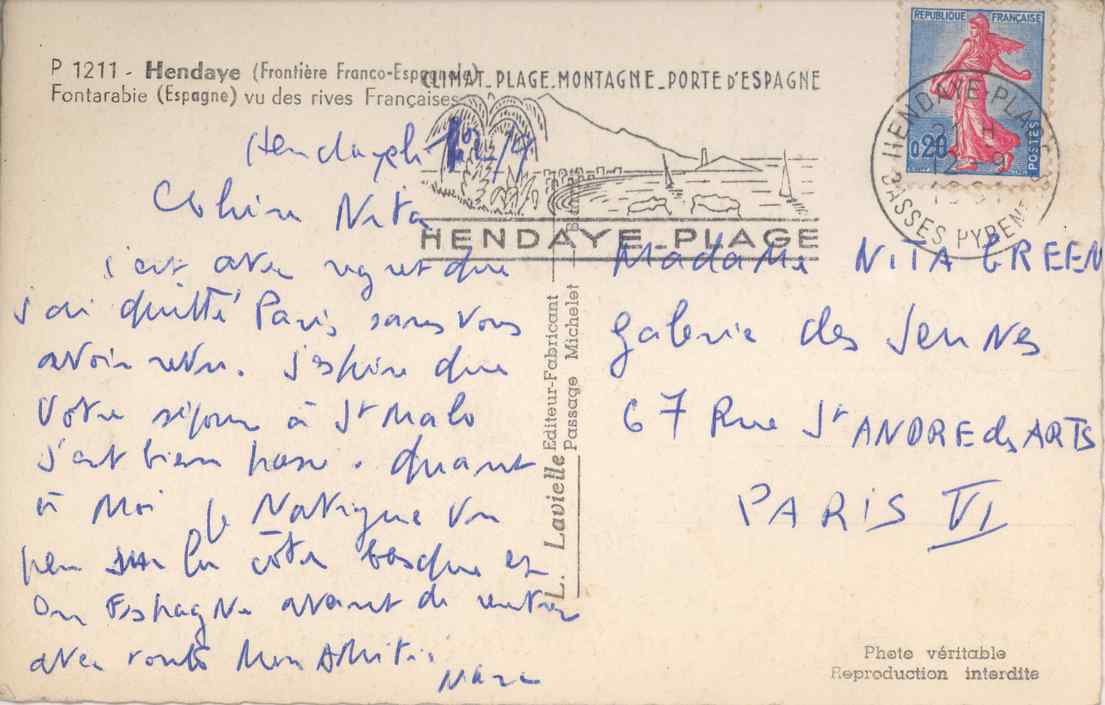 P 1211 - Hendaye (Frontière Franco-Espagnole)
Fontarabie (Espagne) vu des rives Françaises
CLIMAT_PLAGE_MONTAGNE_PORTE D'ESPAGNE
HENDAYE_PLAGE
REPUBLIQUE FRANÇAISE
0,20
POSTES
HENDAYE-PLAGE
BASSES PYRENEES
Nita
c'est avec regret que
j'ai quitté Paris sans vous
avoir revu. J'espère que
votre séjour à St Malo
s'est bien passé. Quant
à moi je navigue un
peu sur la côte basque et
en Espagne avant de rentrer
avec toutes mes amitiés
Marc
Madame NITA GREEN
galerie des Jeunes
67 Rue St ANDRE des ARTS
PARIS VI
L. Lavielle Editeur-Fabricant
Passage Michelet
Photo véritable
Reproduction interdite